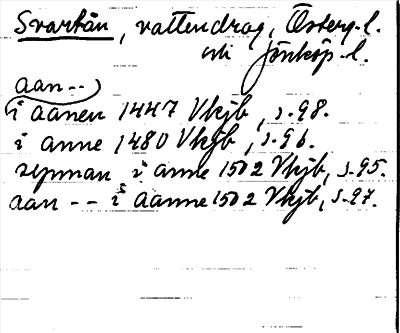 Svartån, vattendrag, Österg. l.
och Jönköp. l.
aan --
i aanen 1447 Vkjb, s. 98.
i anne 1480 Vkjb, s. 96.
i anne 1502 Vkjb, s. 95.
aan -- i aanne 1502 Vkjb, s. 97.